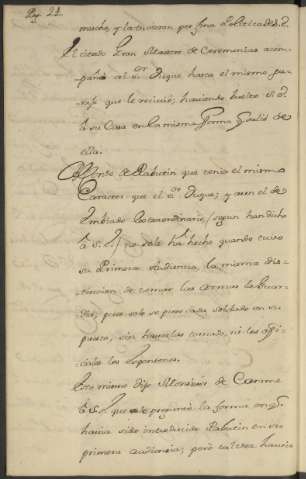 Pag. 22.
mucho, y la tuvieron por fina Politica de S. E.
El citado Gran Maestro de Ceremonias acom-
pañó al Sor Duque hasta el mismo pa-
raje que le recivió, haviendo buelto S. E.
a su Casa en la misma forma q. salió de
ella.
Monsr. de Rabutin que tenia el mismo
Caracter que el Sr. Duque, y aun el de
Embiado Extraordinario, segun han dicho
a S. E. no se le ha hecho quando tuvo
su Primera Audiencia, la misma dis-
tincion de tomar las Armas la Guar-
dia, pues solo se puso cada soldado en su
puesto, sin haverlas tomado, ni los offi-
ciales los Espontones.
Lo mismo dijo Monsieur de
a S. E. que le preguntó la forma en q.
havia sido introducido Rabutin en su
primera audiencia; pero tal vez havria